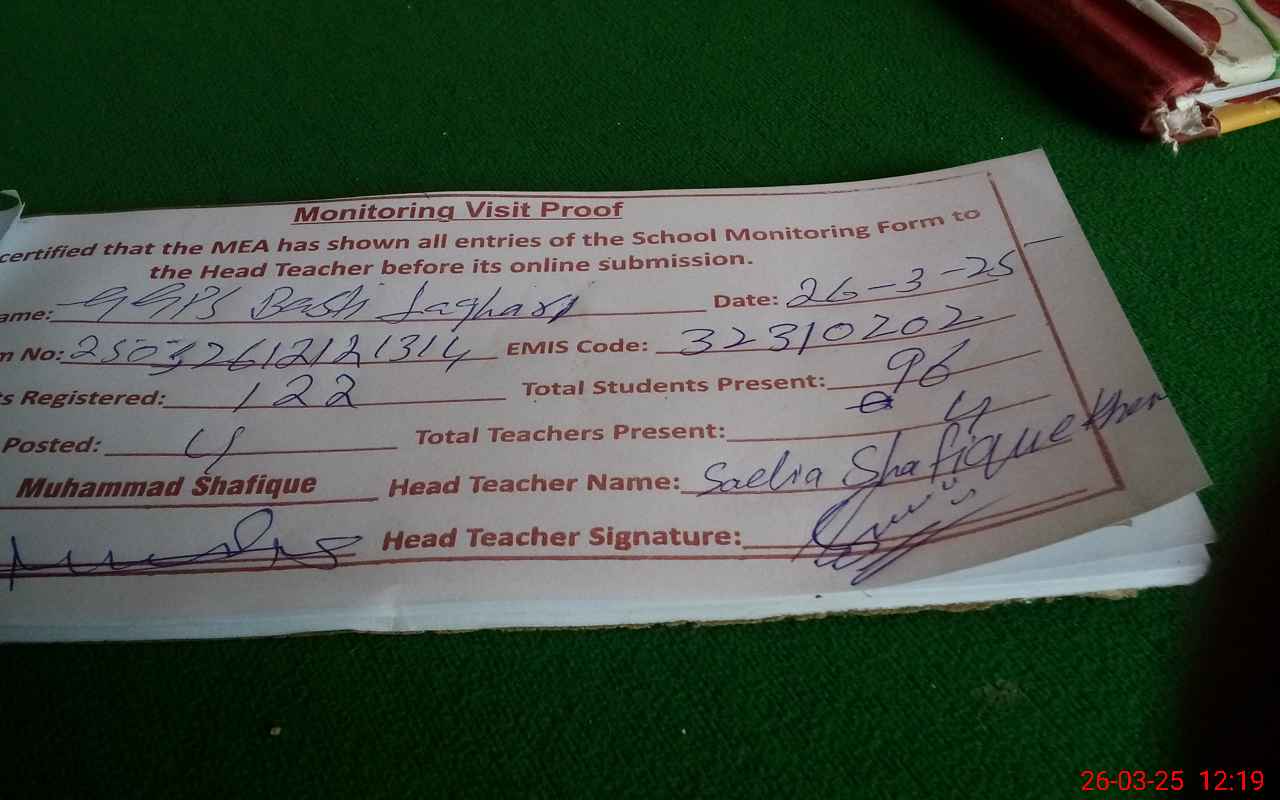 Monitoring Visit Proof
certified that the MEA has shown all entries of the School Monitoring Form to
the Head Teacher before its online submission.
ame: GGPS Basti Laghari Date: 26-3-25
m No: 25032612121314 EMIS Code: 32310202
s Registered: 122 Total Students Present: 96
Posted: 4 Total Teachers Present: 4
Muhammad Shafique Head Teacher Name: Sadia Shafique Khan
Head Teacher Signature:
26-03-25 12:19